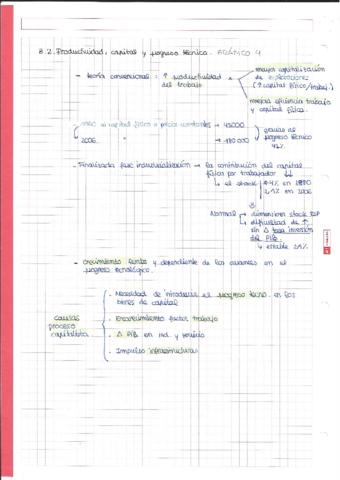 8.2. Productividad, capital y progreso técnico. GRÁFICO 4
- teoría convencional: ↑ productividad del trabajo
mayor capitalización de
(↑ capital físico/trabaj.)
mayor eficiencia trabajo y capital físico.
capital físico a precio constantes → 45000
2006 " → 180 000
gracias al progreso técnico
- Finalizada fase industrialización → la contribución del capital físico por trabajador ↓↓
↳ el stock
en 2006
Normal
dimensión stock
dificultad de ↑ sin Δ tasa inversión del PIB
↳ estable
- Crecimiento lento y dependiente de los avances en el progreso tecnológico.
causas proceso capitalista
· Necesidad de introducir el progreso tecno. en los bienes de capital
· Encarecimiento factor trabajo
· Δ PIB en ind. y servicio
· Impulso infraestructuras